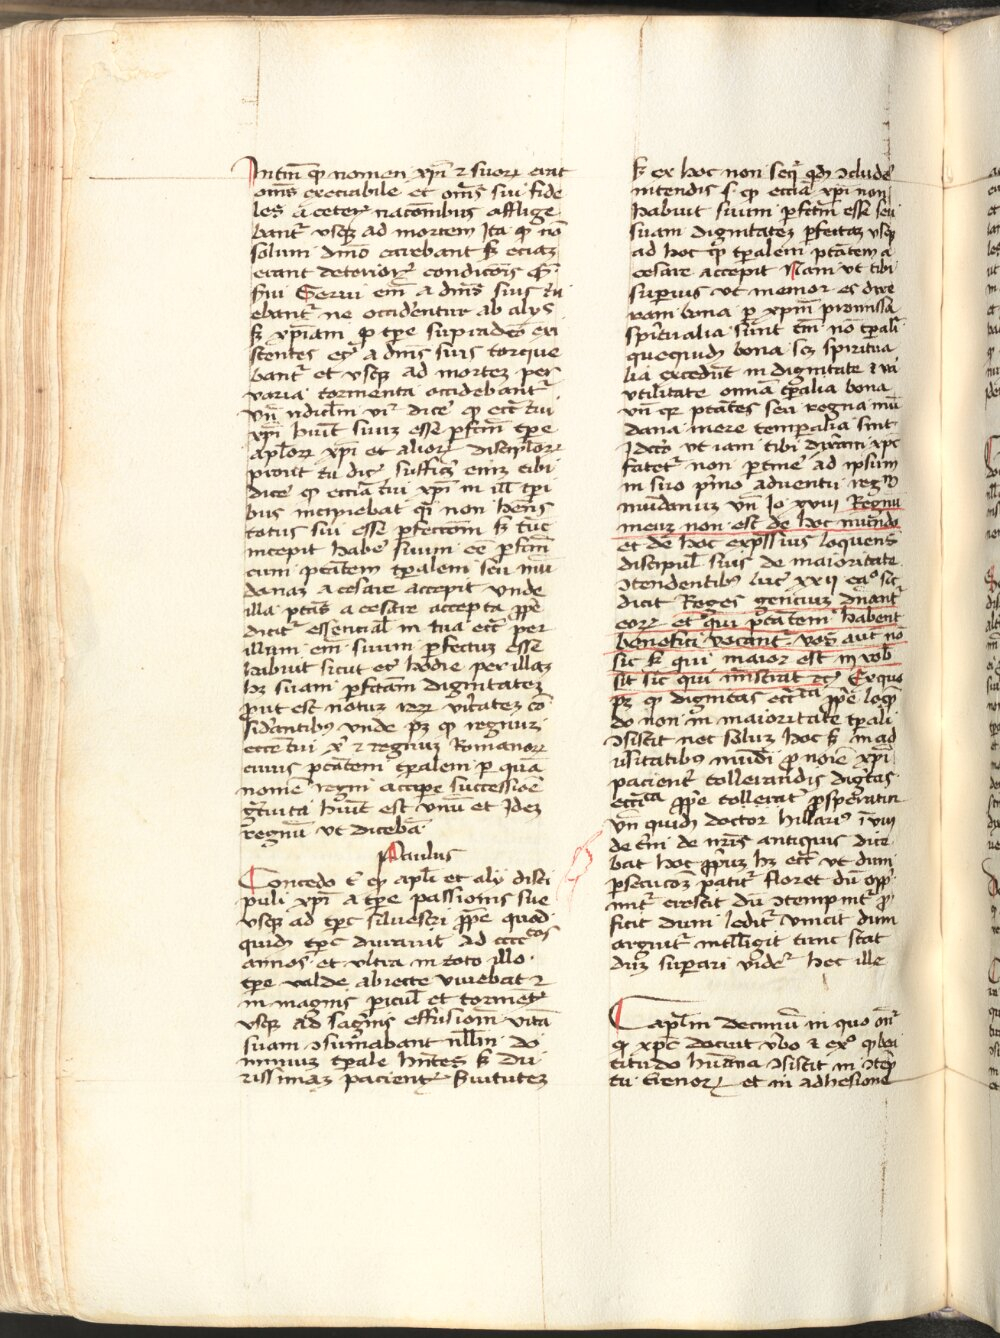 Intm̄ ꝙ nomen xp̄i ⁊ suoꝝ erat
om̄s execrabile et om̄s sui fide
les a ceteꝝ nacōmbus afflige
bant᷑ usqꝫ ad mortem Ita ꝙ nō
solum dm̄o carebant sꝫ eciaꝫ
erant detercioꝝ condicōis ꝙ̄
s̄ui Serui em̄ a dm̄s suis tu
ebant᷑ ne occiderentur ab alijs
sꝫ xp̄iani ꝓ tꝑe supradc̄o exi
stentes eꝯ a dm̄s suis torque
bant᷑ et usqꝫ ad morteꝫ per
varia tormenta occidebant᷑
dice᷑ ꝙ ecc̄ tui
xp̄i hūit suuꝫ esse ꝑfc̄m tꝑe
apl̄oꝝ xp̄i et alioꝝ discipuloꝝ
prout tu dic̄ suffic̄ eniꝫ tibi
dice᷑ ꝙ ecc̄ia tui xp̄i in ill̄ tꝑi
bus incipiebat qͣi non hn̄s
totus sui esse ꝑfectōm sꝫ tūc
incepit habe᷑ suum eē ꝑfc̄m
cum ptātem tꝑalem seu mū
danaꝫ a cesare accepit unde
illa ptās a cesare accepta ꝓpe
dicit᷑ essencial̄ in tua ecc̄ per
illum em̄ suum ꝑfectuꝫ esse
habuit sicut eꝯ hodie per illaꝫ
hꝫ suam ꝑfc̄tam dignitateꝫ
ꝓut est notuꝫ reꝝ vītateꝫ cō
sid̄antibꝰ unde pꝫ ꝙ regnuꝫ
ecc̄e tui xp̄i ⁊ regnuꝫ Romanoꝝ
cuius ptātem tꝑalem ꝑ quā
nomē regni accipe successionē
hūit est unū et Ideꝫ
regnū ut dicebā
Paulus
Concedo t᷑ ꝙ apl̄i et alij disci
puli xp̄i a tꝑe passionis sue
usqꝫ ad tꝑꝯ silvestri ꝓpe quod
quidꝫ tꝑꝯ duravit ad ccccͭᵒˢ
annos et ultra in toto illo
tꝑe valde abiecte vivebat ⁊
in magnis picul̄ et tormet̄ꝫ
usqꝫ ad sagͥnis effusiom̄ vitā
suam ↄsumabant nll̄m do
minuꝫ tꝑale hn̄tes sꝫ du
rissimaꝫ pacient᷑ s̄uitutez
sꝫ ex hoc non seqͥ᷑ qd̄ ↄclude᷑
intendis s. ꝙ ecc̄ia xp̄i non
habuit suum ꝑfc̄m esse seu
suam dignitateꝫ ꝑfectaꝫ usqꝫ
ad hoc ꝙ tꝑalem ptātem a
cesare accepit Nam ut tibi
suꝑius ut memor es dixe
ram bona ꝑ xp̄m promissa
spūalia sunt tm̄ nō tꝑali᷑
quequidꝫ bona scꝫ spiritua
lia excedūt in dignitate ⁊ in
utilitate omnia tꝑalia bona
un̄ qꝛ ptātes seu regna mū
dana mere temporalia sint
Idcͦ ut iam tibi dixeram xp̄c
fatet᷑ non ꝑtine᷑ ad ipsum
in suo pͥmo adventu regͫ
mūdanum un̄ Io xviii Regnū
meuꝫ non est de hoc mūdo
et de hoc exp̄ssius loquens
discipul̄ suis de maioritate
ↄtendentibꝰ luc̄ xxii caͦ sic
dicit Reges genciuꝫ dn̄ant᷑
eoꝝ et qui ptātem habent
benefici vocant᷑ vos aut nō
sic sꝫ qui maior est in vob̄
sit sic qui mīstrat ⁊cꝫ Ex quo
pꝫ ꝙ dignitas ecc̄ᵗᵃ ꝓpe loqn̄
do non in maioritate tꝑali
ↄsistit nec soluꝫ hoc sꝫ in ad
ūsitatibꝰ mūdi ꝓ noīe xp̄i
pacient᷑ tollerandis digͭas
ecc̄ᵗᵃ ꝓpe tollerat᷑ ꝓspatur
un̄ quidꝫ doctor hillariꝰ ī viii
de t̄ni de nr̄is antiquis dice
bat hoc ꝓpͥuꝫ hꝫ ecc̄ ut dum
ꝑsecucōꝫ patit᷑ floret dū oppͥ
mit᷑ crescit dū ↄtempnit᷑ ꝓ
ficit dum ledit᷑ vincit dum
arguit᷑ intelligit tunc stat
duꝫ suꝑari vide᷑ hec ille
Capl̄m decimū in quo on̄᷑
ꝙ xp̄c docuit ūbo ⁊ exͦ ꝙ bea
titudo hūana ↄsistit in ↄtēp
tu t̄renoꝝ et in adhesione